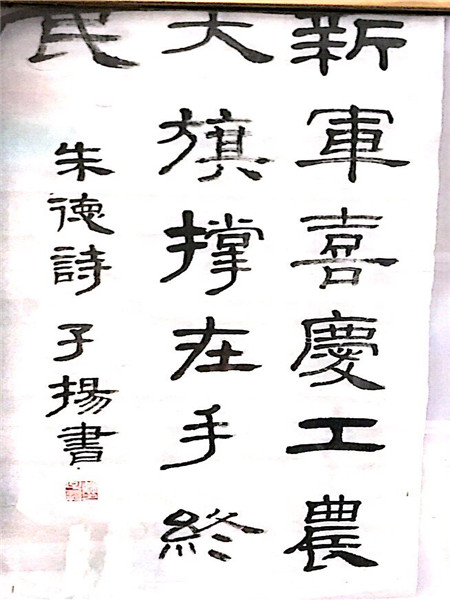 新軍喜慶工農
大旗撐在手終
民
朱德詩 子揚書